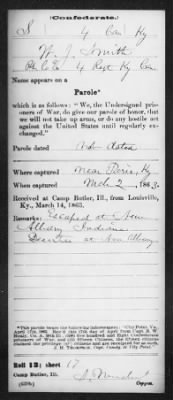 (Confederate.)
S 4 Cav Ky
W. J. Smith
4 Regt Ky Cav
Name appears on a
Parole*
which is as follows: "We, the Undersigned prisoners
of War, do give our parole of honor, that
we will not take up arms, or do any hostile act
against the United States until regularly exchanged."
Parole dated Not dated
Where captured Near Paris, Ky
When captured Mch 2, 1863.
Received at Camp Butler, Ill., from Louisville,
Ky., March 14, 1863.
Remarks: Escaped at New
Albany Indiana
Deserted at New Albany
Roll 13; sheet 17
Camp Butler, Ill.
Copyist.